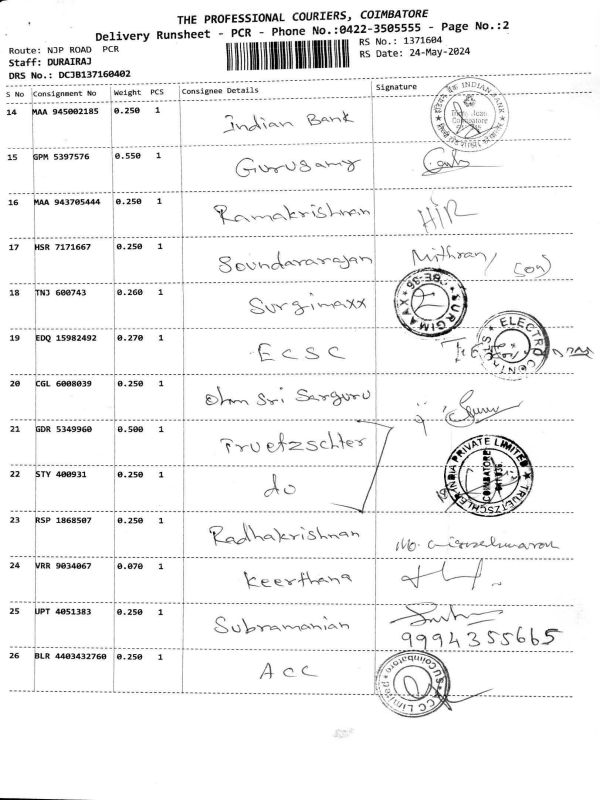 THE PROFESSIONAL COURIERS, COIMBATORE
Delivery Runsheet - PCR - Phone No.:0422-3505555 - Page No.:2
Route: NJP ROAD PCR
RS No.: 1371604
Staff: DURAIRAJ
RS Date: 24-May-2024
DRS No.: DCJB137160402
S No Consignment No Weight PCS Consignee Details Signature
14 MAA 945002185 0.250 1 Indian Bank INDIAN BANK Coimbatore
15 GPM 5397576 0.550 1 Gurusamy
16 MAA 943705444 0.250 1 Ramakrishnan
17 HSR 7171667 0.250 1 Soundararajan Mithran / Son
18 TNJ 600743 0.260 1 Surgimaxx SURGIMAAX CBE-35
19 EDQ 15982492 0.270 1 ECSC ELECTRO CONTROLS
20 CGL 6008039 0.250 1 Ohm Sri Sarguru
21 GDR 5349960 0.500 1 Truetzschter
22 STY 400931 0.250 1 do TRUETZSCHLER INDIA PRIVATE LIMITED COIMBATORE
23 RSP 1868507 0.250 1 Radhakrishnan
24 VRR 9034067 0.070 1 Keerthana
25 UPT 4051383 0.250 1 Subramanian
9994355665
26 BLR 4403432760 0.250 1 ACC ACC Limited Coimbatore